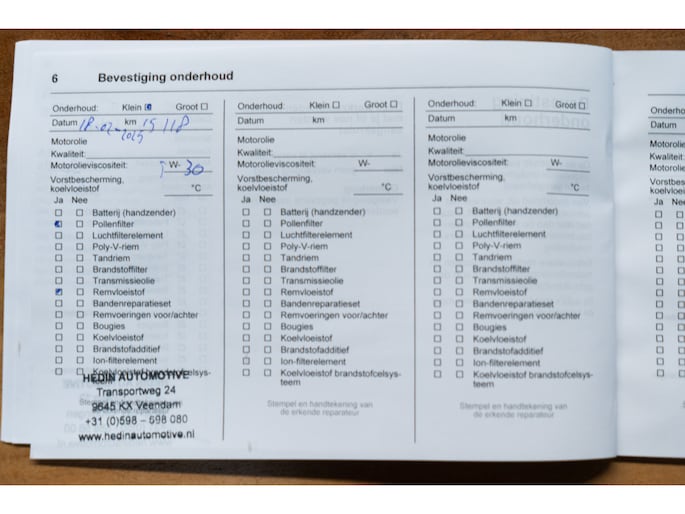 6 Bevestiging onderhoud
Onderhoud: Klein Groot
Datum 18-02-2025 km 15118
Motorolie
Kwaliteit:
Motorolieviscositeit: W-30
Vorstbescherming,
koelvloeistof °C
Ja Nee
Batterij (handzender)
Pollenfilter
Luchtfilterelement
Poly-V-riem
Tandriem
Brandstoffilter
Transmissieolie
Remvloeistof
Bandenreparatieset
Remvoeringen voor/achter
Bougies
Koelvloeistof
Brandstofadditief
Ion-filterelement
Koelvloeistof brandstofcelsys-
HEDIN AUTOMOTIVE
Transportweg 24
9645 KX Veendam
+31 (0)598 - 698 080
www.hedinautomotive.nl
Onderhoud: Klein Groot
Datum km
Motorolie
Kwaliteit:
Motorolieviscositeit: W-
Vorstbescherming,
koelvloeistof °C
Ja Nee
Batterij (handzender)
Pollenfilter
Luchtfilterelement
Poly-V-riem
Tandriem
Brandstoffilter
Transmissieolie
Remvloeistof
Bandenreparatieset
Remvoeringen voor/achter
Bougies
Koelvloeistof
Brandstofadditief
Ion-filterelement
Koelvloeistof brandstofcelsys-
teem
Stempel en handtekening van
de erkende reparateur
Onderhoud: Klein Groot
Datum km
Motorolie
Kwaliteit:
Motorolieviscositeit: W-
Vorstbescherming,
koelvloeistof °C
Ja Nee
Batterij (handzender)
Pollenfilter
Luchtfilterelement
Poly-V-riem
Tandriem
Brandstoffilter
Transmissieolie
Remvloeistof
Bandenreparatieset
Remvoeringen voor/achter
Bougies
Koelvloeistof
Brandstofadditief
Ion-filterelement
Koelvloeistof brandstofcelsys-
teem
Stempel en handtekening van
de erkende reparateur
Datum
Kwaliteit:
Ja